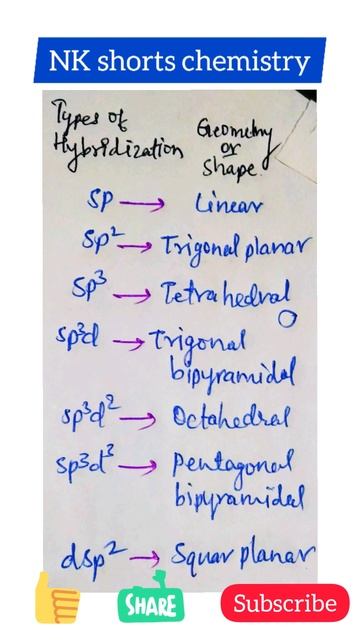 NK shorts chemistry
Types of Hybridization
Geometry or Shape
sp → Linear
sp² → Trigonal planar
sp³ → Tetrahedral
sp³d → Trigonal bipyramidal
sp³d² → Octahedral
sp³d³ → Pentagonal bipyramidal
dsp² → Squar planar
SHARE
Subscribe